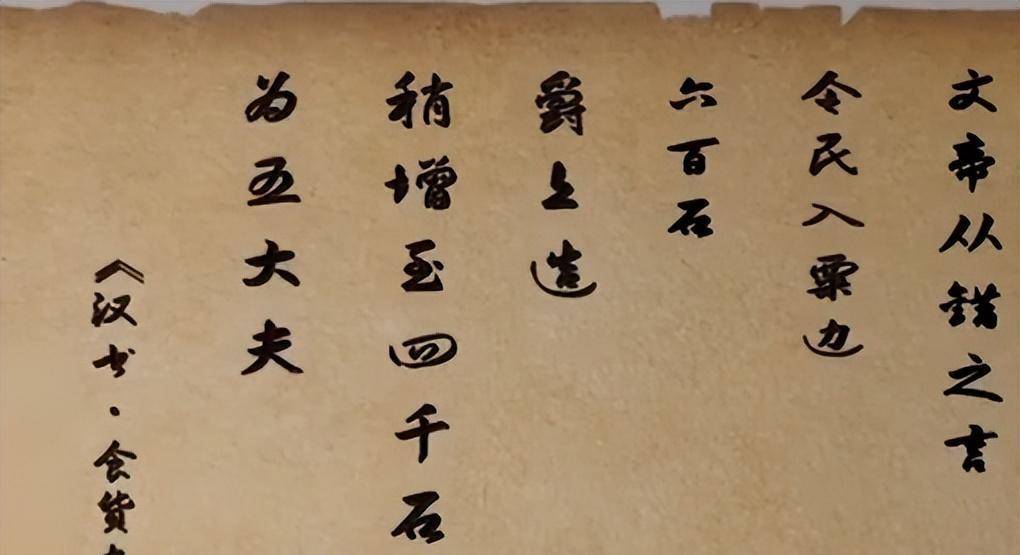 文帝从错之言
令民入粟边
六百石
爵上造
稍增至四千石
为五大夫
《汉书·食货